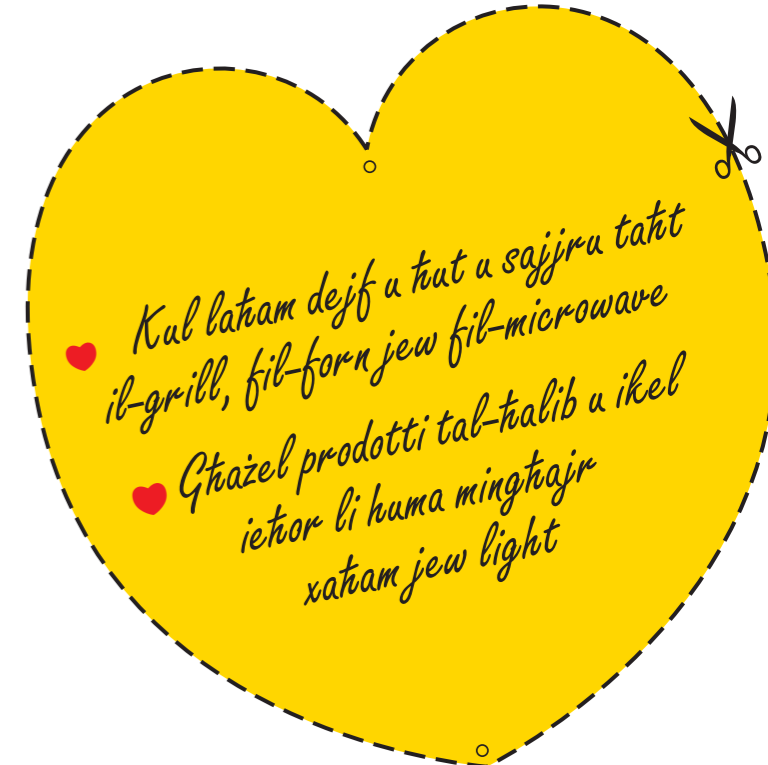 Kul laħam dejf u ħut u sajjru taħt
il-grill, fil-forn jew fil-microwave
Għażel prodotti tal-ħalib u ikel
ieħor li huma mingħajr
xaħam jew light